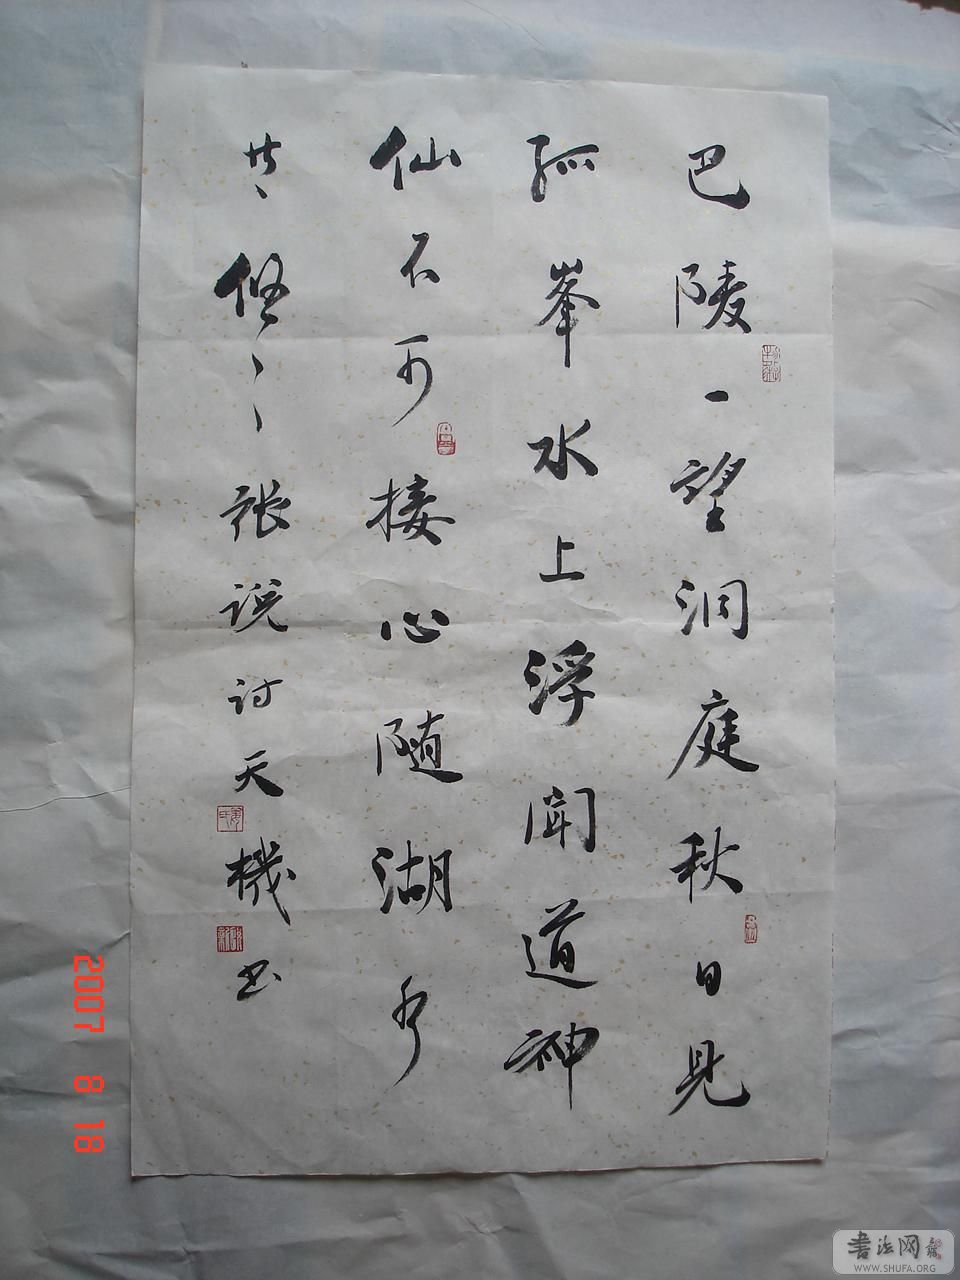 巴陵一望洞庭秋日見
孤峯水上浮闻道神
仙不可接心随湖水
共悠、、張説诗天機书
2007 8 18
書法网
WWW.SHUFA.ORG